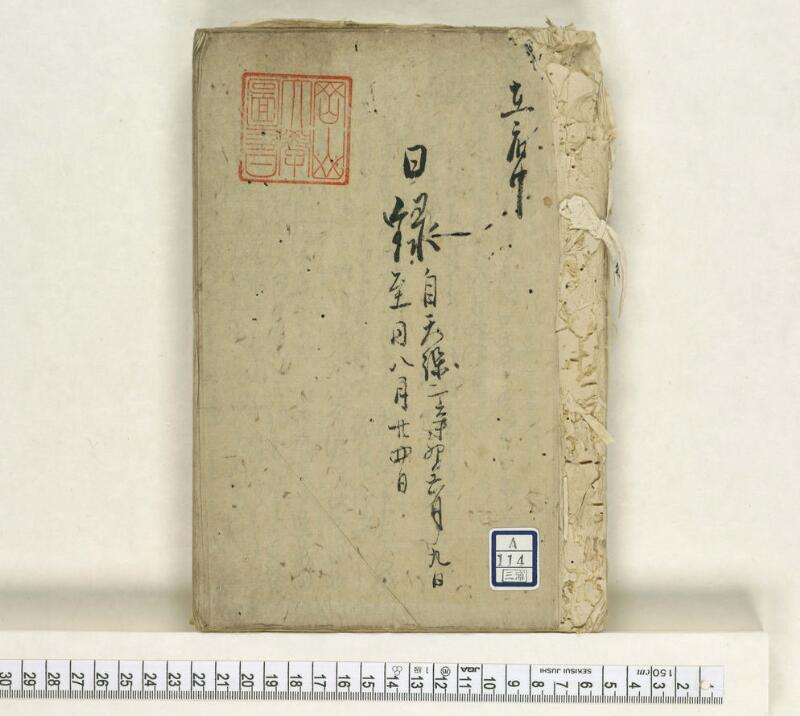 在府中
日録
自天保二辛卯六月九日
至同八月廿四日
岡山
大學
圖書
A
114
三浦
30 29 28 27 26 25 24 23 22 21 20 19 18 17 16 15 14 13 12 11 10 9 8 7 6 5 4 3 2 1
1級
SEKISUI JUSHI
cm
150